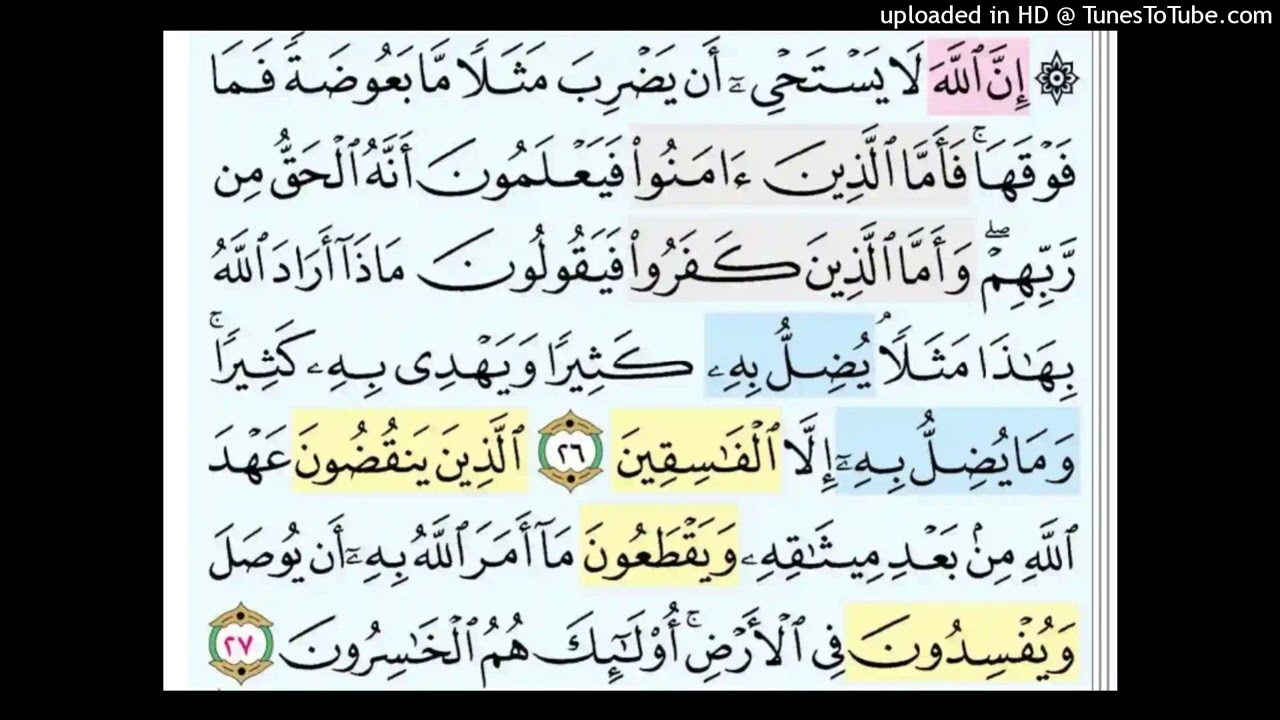 uploaded in HD @ TunesToTube.com
۞ إِنَّ ٱللَّهَ لَا يَسْتَحْىِۦٓ أَن يَضْرِبَ مَثَلًا مَّا بَعُوضَةً فَمَا
فَوْقَهَا ۚ فَأَمَّا ٱلَّذِينَ ءَامَنُوا۟ فَيَعْلَمُونَ أَنَّهُ ٱلْحَقُّ مِن
رَّبِّهِمْ ۖ وَأَمَّا ٱلَّذِينَ كَفَرُوا۟ فَيَقُولُونَ مَاذَآ أَرَادَ ٱللَّهُ
بِهَٰذَا مَثَلًا ۘ يُضِلُّ بِهِۦ كَثِيرًا وَيَهْدِى بِهِۦ كَثِيرًا ۚ
وَمَا يُضِلُّ بِهِۦٓ إِلَّا ٱلْفَٰسِقِينَ ٢٦ ٱلَّذِينَ يَنقُضُونَ عَهْدَ
ٱللَّهِ مِنۢ بَعْدِ مِيثَٰقِهِۦ وَيَقْطَعُونَ مَآ أَمَرَ ٱللَّهُ بِهِۦٓ أَن يُوصَلَ
وَيُفْسِدُونَ فِى ٱلْأَرْضِ ۚ أُو۟لَٰٓئِكَ هُمُ ٱلْخَٰسِرُونَ ٢٧